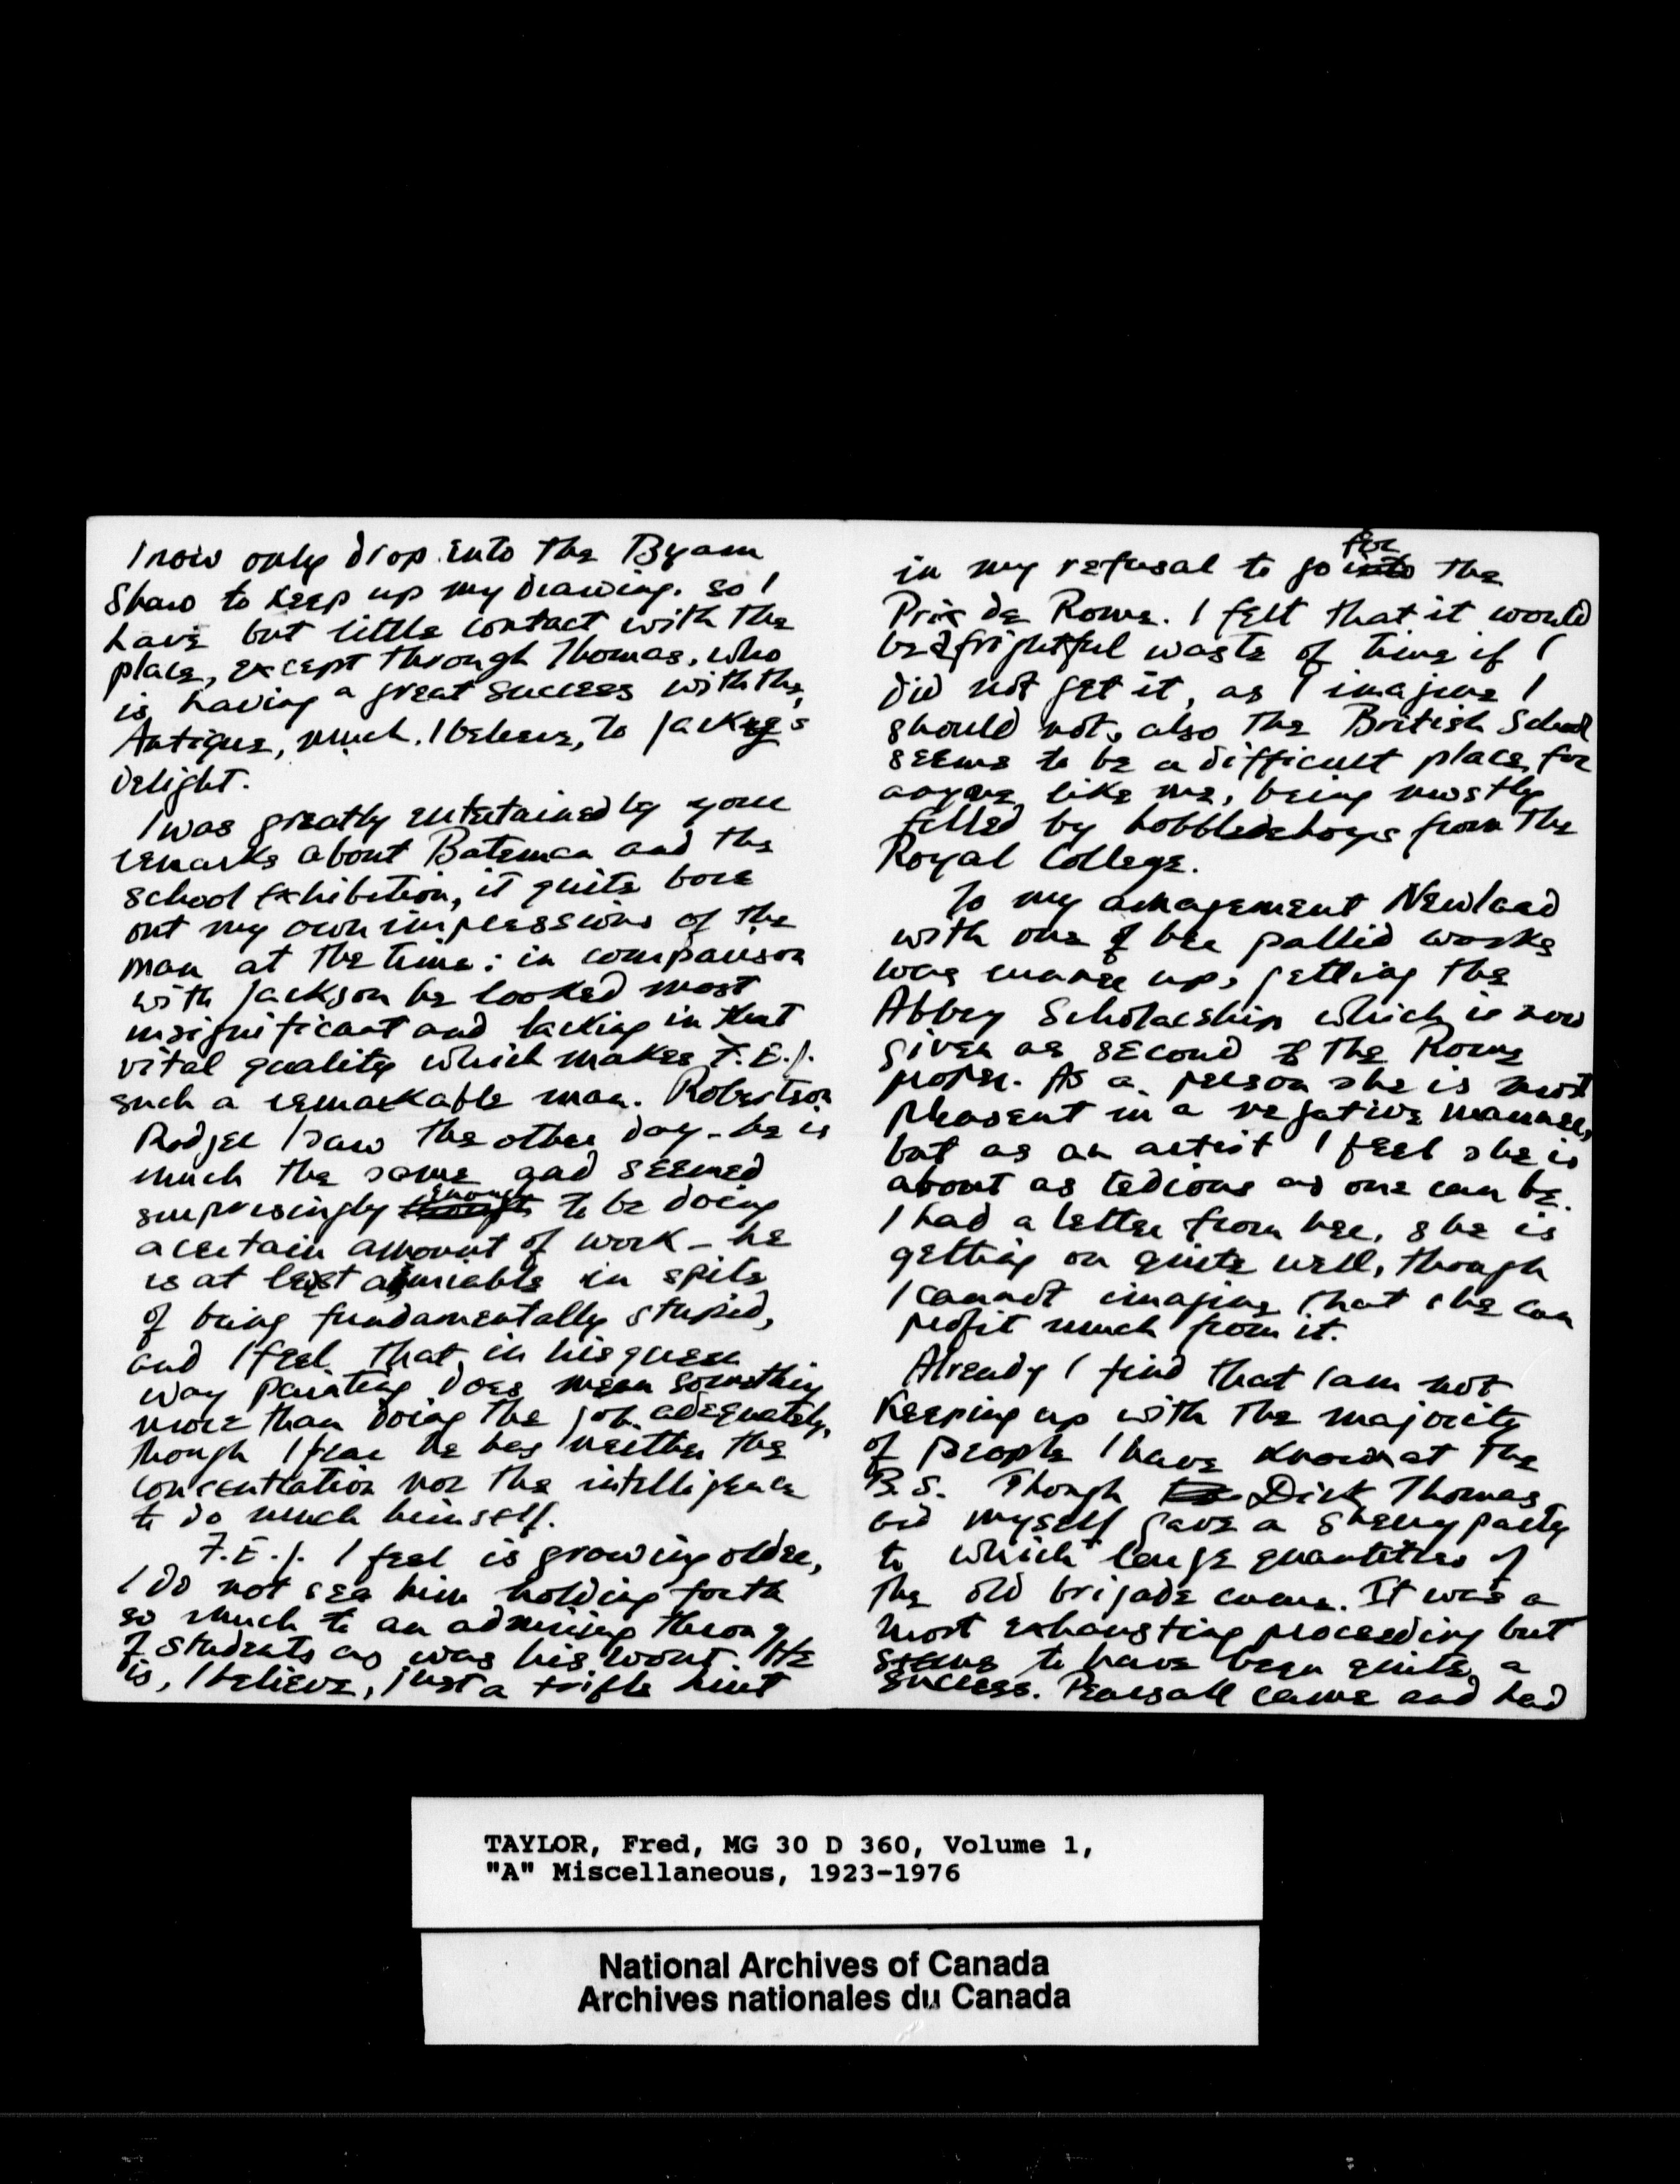 I now only drop into the Byam
Shaw to keep up my drawing. so I
have but little contact with the
place, except through Thomas, who
is having a great success with the
Antique, much, I believe, to Jackey's
delight.
I was greatly entertained by your
remarks about Bateman and the
school Exhibition, it quite bore
out my own impressions of the
man at the time: in comparison
with Jackson he looked most
insignificant and lacking in that
vital quality which makes F.E.J.
such a remarkable man. Robertson
Rodger I saw the other day - he is
much the same and seemed
surprisingly enough to be doing
a certain amount of work - he
is at least amiable in spite
of being fundamentally stupid,
and I feel that, in his queer
way painting does mean something
more than doing the job adequately,
though I fear he has neither the
concentration nor the intelligence
to do much himself.
F.E.J. I feel is growing older,
I do not see him holding forth
so much to an admiring throng
of students as was his wont. He
is, I believe, just a trifle hurt
in my refusal to go into for the
Prix de Rome. I felt that it would
be a frightful waste of time if I
did not get it, as I imagine I
should not, also the British School
seems to be a difficult place for
anyone like me, being mostly
filled by hobbledehoys from the
Royal College.
To my amazement Newland
with one of her pallid works
was runner up, getting the
Abbey Scholarship which is now
given as second to the Rome
proper. As a person she is most
pleasent in a negative manner,
but as an artist I feel she is
about as tedious as one can be.
I had a letter from her, she is
getting on quite well, though
I cannot imagine that she can
profit much from it.
Already I find that I am not
keeping up with the majority
of people I have known at the
B.S. Though Dick Thomas
and myself gave a sherry party
to which large quantities of
the old brigade came. It was a
most exhausting proceeding but
seems to have been quite a
success. Pearsall came and had
TAYLOR, Fred, MG 30 D 360, Volume 1,
"A" Miscellaneous, 1923-1976
National Archives of Canada
Archives nationales du Canada